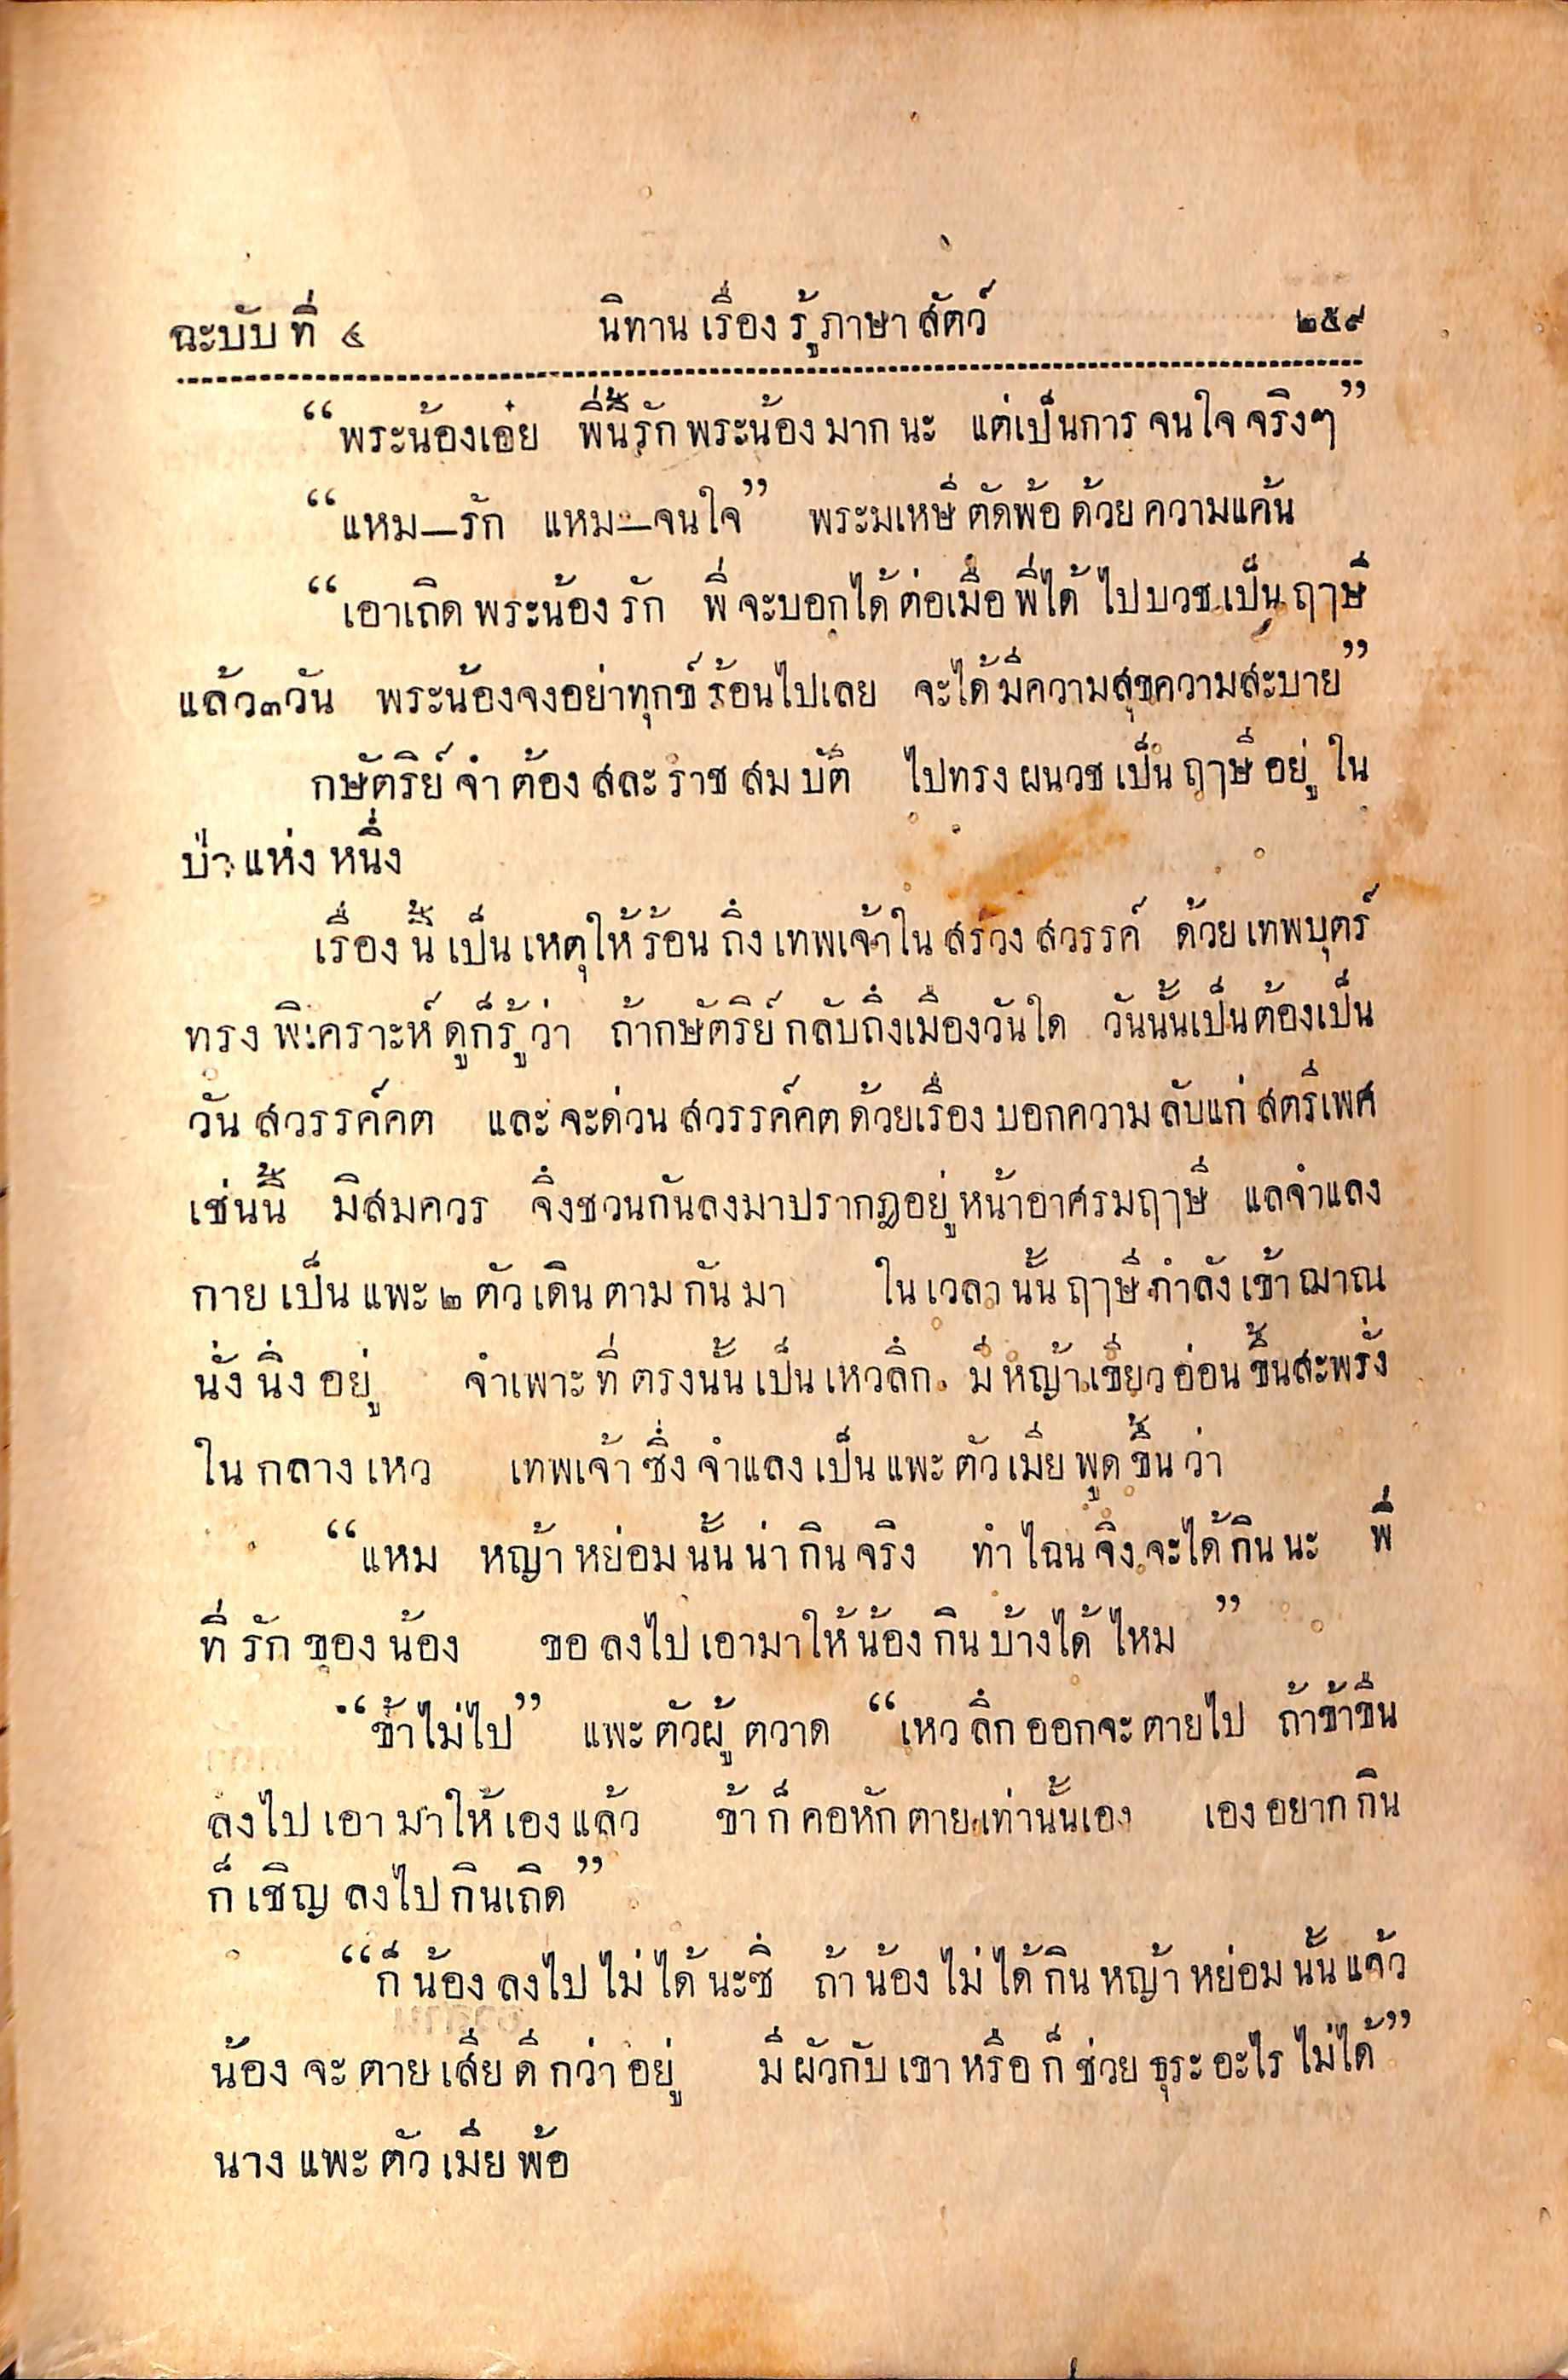 ฉะบับที่ ๔ นิทานเรื่องรู้ภาษาสัตว์ ๒๕๙
“พระน้องเอ๋ย พี่นี้รักพระน้องมากนะ แต่เป็นการจนใจจริงๆ”
“แหม—รัก แหม—จนใจ” พระมเหษีตัดพ้อด้วยความแค้น
“เอาเถิดพระน้องรัก พี่จะบอกได้ต่อเมื่อพี่ได้ไปบวชเป็นฤๅษี
แล้ว๓วัน พระน้องจงอย่าทุกข์ร้อนไปเลย จะได้มีความสุขความสะบาย”
กษัตริย์จำต้องสละราชสมบัติ ไปทรงผนวชเป็นฤๅษีอยู่ใน
ป่าแห่งหนึ่ง
เรื่องนี้เป็นเหตุให้ร้อนถึงเทพเจ้าในสรวงสวรรค์ ด้วยเทพบุตร์
ทรงพิเคราะห์ดูก็รู้ว่า ถ้ากษัตริย์กลับถึงเมืองวันใด วันนั้นเป็นต้องเป็น
วันสวรรค์คต และจะด่วนสวรรค์คตด้วยเรื่องบอกความลับแก่สตรีเพศ
เช่นนี้ มิสมควร จึงชวนกันลงมาปรากฎอยู่หน้าอาศรมฤๅษี แลจำแลง
กายเป็นแพะ๒ตัวเดินตามกันมา ในเวลานั้นฤๅษีกำลังเข้าฌาณ
นั่งนิ่งอยู่ จำเพาะที่ตรงนั้นเป็นเหวลึก มีหญ้าเขียวอ่อนขึ้นสะพรั่ง
ในกลางเหว เทพเจ้าซึ่งจำแลงเป็นแพะตัวเมียพูดขึ้นว่า
“แหม หญ้าหย่อมนั้นน่ากินจริง ทำไฉนจึงจะได้กินนะ พี่
ที่รักของน้อง ขอลงไปเอามาให้น้องกินบ้างได้ไหม”
“ข้าไม่ไป” แพะตัวผู้ตวาด “เหวลึกออกจะตายไป ถ้าข้าขืน
ลงไปเอามาให้เองแล้ว ข้าก็คอหักตายเท่านั้นเอง เองอยากกิน
ก็เชิญลงไปกินเถิด”
“ก็น้องลงไปไม่ได้นะซี่ ถ้าน้องไม่ได้กินหญ้าหย่อมนั้นแล้ว
น้องจะตายเสียดีกว่าอยู่ มีผัวกับเขาหรือก็ช่วยธุระอะไรไม่ได้”
นางแพะตัวเมียพ้อ